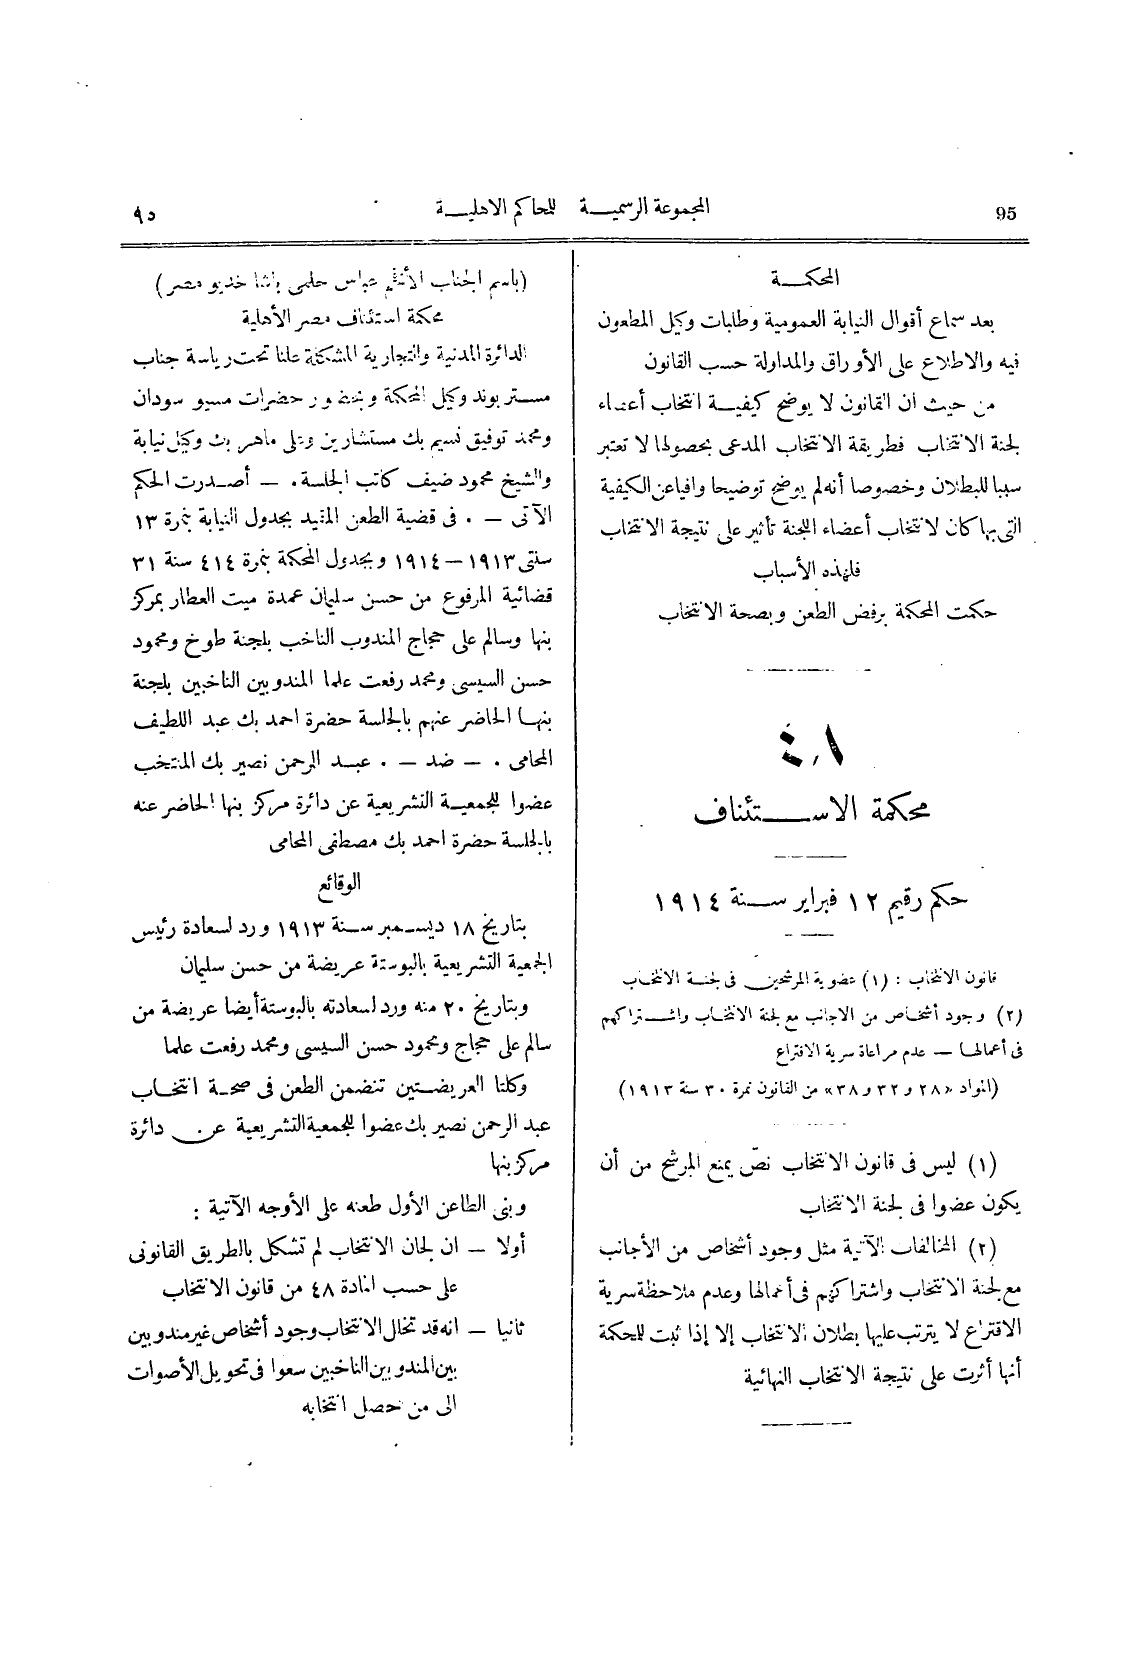 95
المجموعة الرسمية للمحاكم الاهلية
٩٥
المحكمة
بعد سماع أقوال النيابة العمومية وطلبات وكيل المطعون
فيه والاطلاع على الأوراق والمداولة حسب القانون
من حيث ان القانون لا يوضح كيفية انتخاب أعضاء
لجنة الانتخاب فطريقة الانتخاب المدعى بحصولها لا تعتبر
سببا للبطلان وخصوصا أنه لم يوضح توضيحا وافيا عن الكيفية
التى بها كان لانتخاب أعضاء اللجنة تأثير على نتيجة الانتخاب
فلهذه الأسباب
حكمت المحكمة برفض الطعن وبصحة الانتخاب
محكمة الاستئناف
حكم رقيم ١٢ فبراير سنة ١٩١٤
قانون الانتخاب : (١) عضوية المرشحين فى لجنة الانتخاب
(٢) وجود أشخاص من الاجانب مع لجنة الانتخاب واشتراكهم
فى أعمالها — عدم مراعاة سرية الاقتراع
(المواد «٢٨ و٣٢ و٣٨» من القانون نمرة ٣٠ سنة ١٩١٣)
(١) ليس فى قانون الانتخاب نصّ يمنع المرشح من أن
يكون عضوا فى لجنة الانتخاب
(٢) المخالفات الآتية مثل وجود أشخاص من الأجانب
مع لجنة الانتخاب واشتراكهم فى أعمالها وعدم ملاحظة سرية
الاقتراع لا يترتب عليها بطلان الانتخاب إلا إذا ثبت للمحكمة
أنها أثرت على نتيجة الانتخاب النهائية
(باسم الجناب الأفخم عباس حلمى باشا خديو مصر)
محكمة استئناف مصر الأهلية
الدائرة المدنية والتجارية المشكلة علنا تحت رياسة جناب
مستر بوند وكيل المحكمة وبحضور حضرات مسيو سودان
ومحمد توفيق نسيم بك مستشارين وعلى ماهر بك وكيل نيابة
والشيخ محمود ضيف كاتب الجلسة . — أصدرت الحكم
الآتى — . فى قضية الطعن المقيد بجدول النيابة بنمرة ١٣
سنتى ١٩١٣ — ١٩١٤ وبجدول المحكمة بنمرة ٤١٤ سنة ٣١
قضائية المرفوع من حسن سليمان عمدة ميت العطار بمركز
بنها وسالم على حجاج المندوب الناخب بلجنة طوخ ومحمود
حسن السيسى ومحمد رفعت علما المندوبين الناخبين بلجنة
بنها الحاضر عنهم بالجلسة حضرة احمد بك عبد اللطيف
المحامى . — ضد — . عبد الرحمن نصير بك المنتخب
عضوا للجمعية التشريعية عن دائرة مركز بنها الحاضر عنه
بالجلسة حضرة احمد بك مصطفى المحامى
الوقائع
بتاريخ ١٨ ديسمبر سنة ١٩١٣ ورد لسعادة رئيس
الجمعية التشريعية بالبوستة عريضة من حسن سليمان
وبتاريخ ٢٠ منه ورد لسعادته بالبوستة أيضا عريضة من
سالم على حجاج ومحمود حسن السيسى ومحمد رفعت علما
وكلتا العريضتين تتضمن الطعن فى صحة انتخاب
عبد الرحمن نصير بك عضوا للجمعية التشريعية عن دائرة
مركز بنها
وبنى الطاعن الأول طعنه على الأوجه الآتية :
أولا — ان لجان الانتخاب لم تشكل بالطريق القانونى
على حسب المادة ٤٨ من قانون الانتخاب
ثانيا — انه قد تخلل الانتخاب وجود أشخاص غير مندوبين
بين المندوبين الناخبين سعوا فى تحويل الأصوات
الى من حصل انتخابه